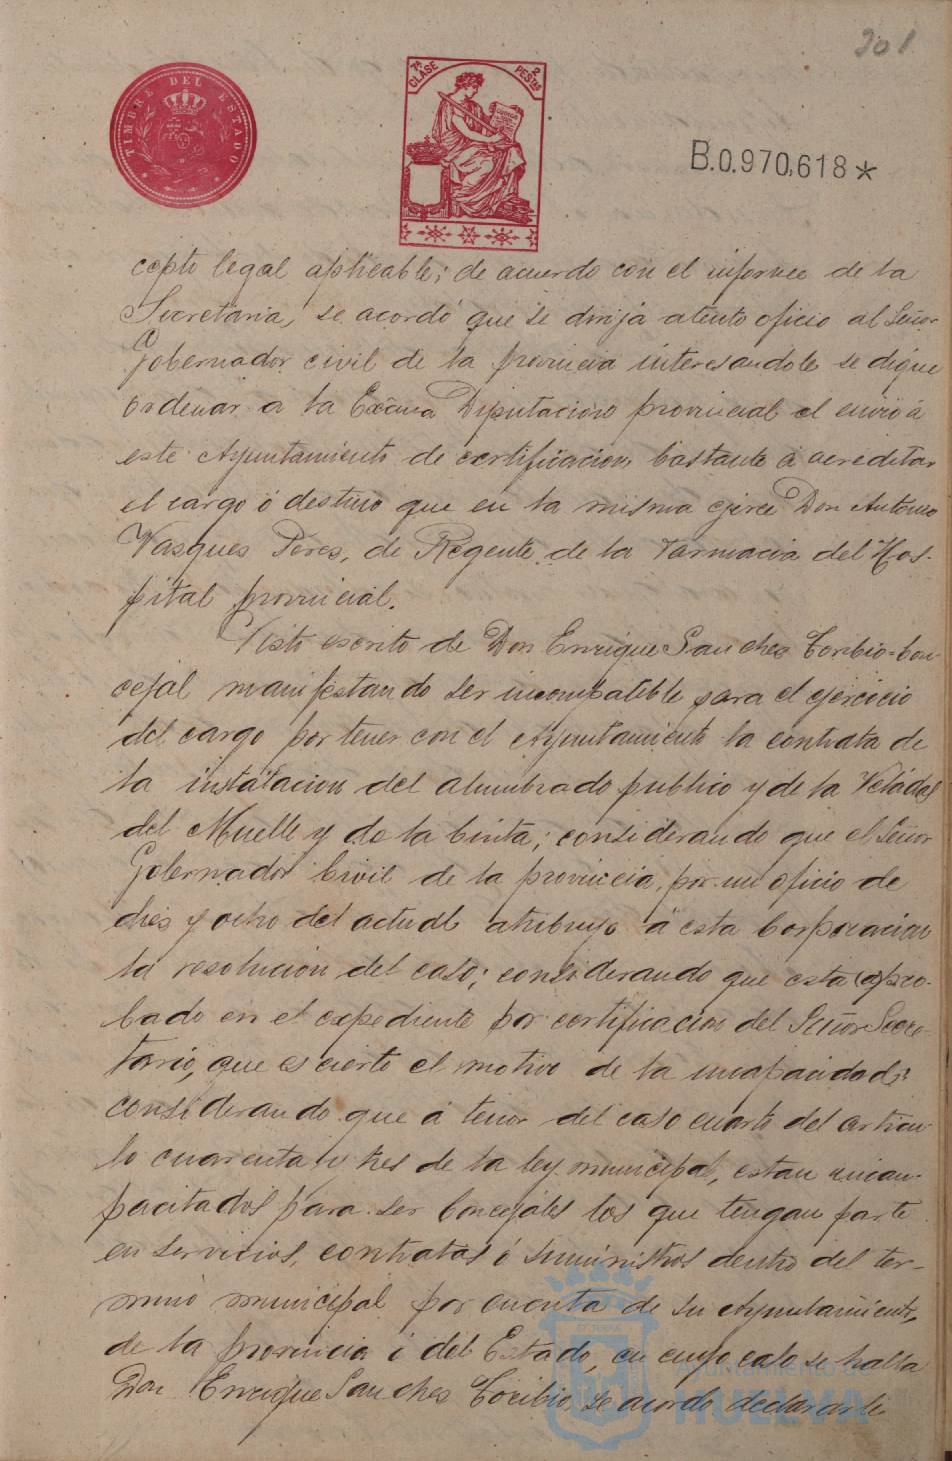 201
TIMBRE DEL ESTADO
7ª CLASE 2 PESTAS
B.0.970,618*
cepto legal aplicable; de acuerdo con el informe de la
Secretaria, se acordó que se dirija atento oficio al Señor
Gobernador civil de la provincia interesandole se digne
ordenar a la Excma Diputacion provincial el envio á
este Ayuntamiento de certificacion bastante á acreditar
el cargo ó destino que en la misma ejerce Don Antonio
Vasques Peres, de Regente de la Farmacia del Hos-
pital provincial.
Visto escrito de Don Enrique Sanches Toribio=Con
cejal manifestando ser incompatible para el ejercicio
del cargo por tener con el Ayuntamiento la contrata de
la instalacion del alumbrado publico y de la Veladas
del Muelle y de la Cinta; considerando que el Señor
Gobernador Civil de la provincia, por un oficio de
dies y ocho del actual atribuye á esta Corporacion
la resolucion del caso; considerando que esta (a)pro-
bado en el expediente por certificacion del Señor Secre-
tario, que es cierto el motivo de la incapacidad;
considerando que á tenor del caso cuarto del articu
lo cuarenta y tres de la ley municipal, estan incan-
pacitados para ser Concejales los que tengan parte
en servicios, contratas ó suministros dentro del ter-
mino municipal por cuenta de su Ayuntamiento,
de la provincia ó del Estado, en cuyo caso se halla
Don Enrique Sanches Toribio, se acordo declararle
Ayuntamiento de
HUELVA